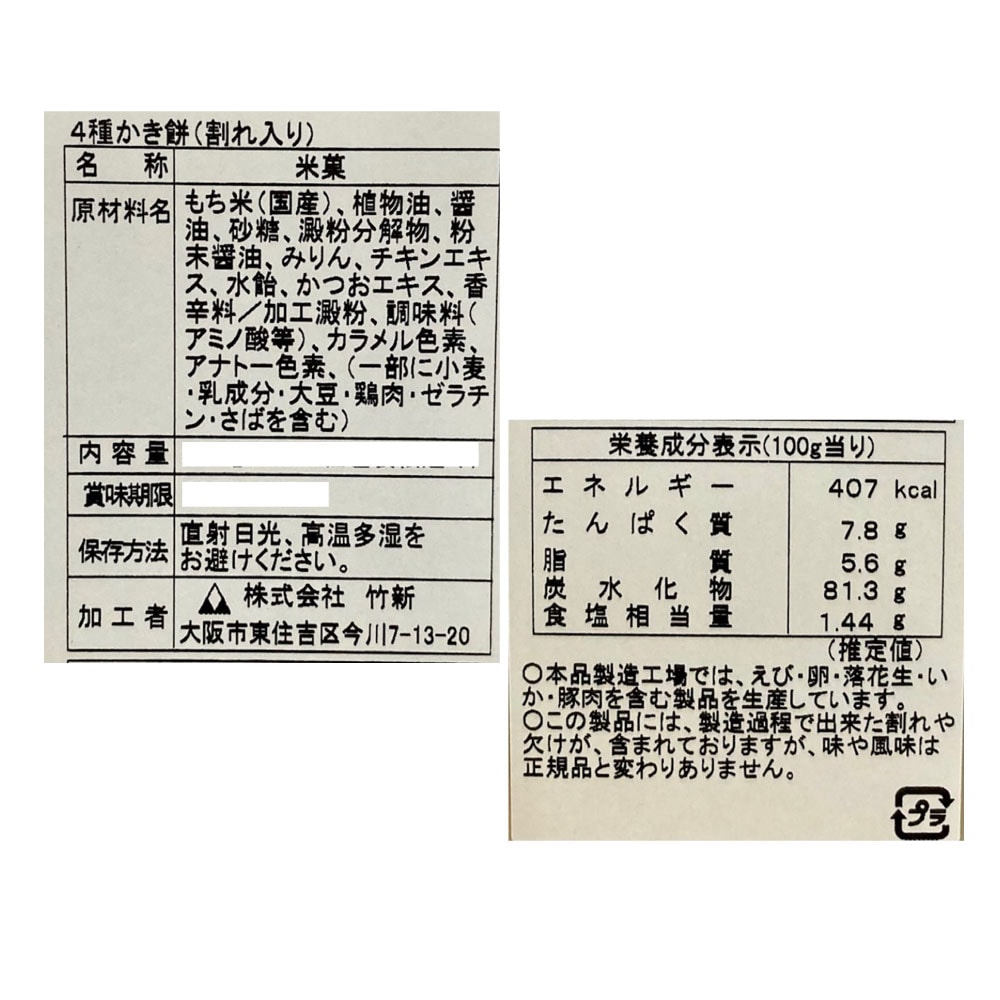 4種かき餅(割れ入り)
名 称 米菓
原材料名 もち米(国産)、植物油、醤
油、砂糖、澱粉分解物、粉
末醤油、みりん、チキンエキ
ス、水飴、かつおエキス、香
辛料/加工澱粉、調味料(
アミノ酸等)、カラメル色素、
アナトー色素、(一部に小麦
・乳成分・大豆・鶏肉・ゼラチ
ン・さばを含む)
内容量
賞味期限
保存方法 直射日光、高温多湿を
お避けください。
加工者 株式会社 竹新
大阪市東住吉区今川7-13-20
栄養成分表示(100g当り)
エネルギー 407 kcal
たんぱく質 7.8 g
脂質 5.6 g
炭水化物 81.3 g
食塩相当量 1.44 g
(推定値)
○本品製造工場では、えび・卵・落花生・い
か・豚肉を含む製品を生産しています。
○この製品には、製造過程で出来た割れや
欠けが、含まれておりますが、味や風味は
正規品と変わりありません。
プラ